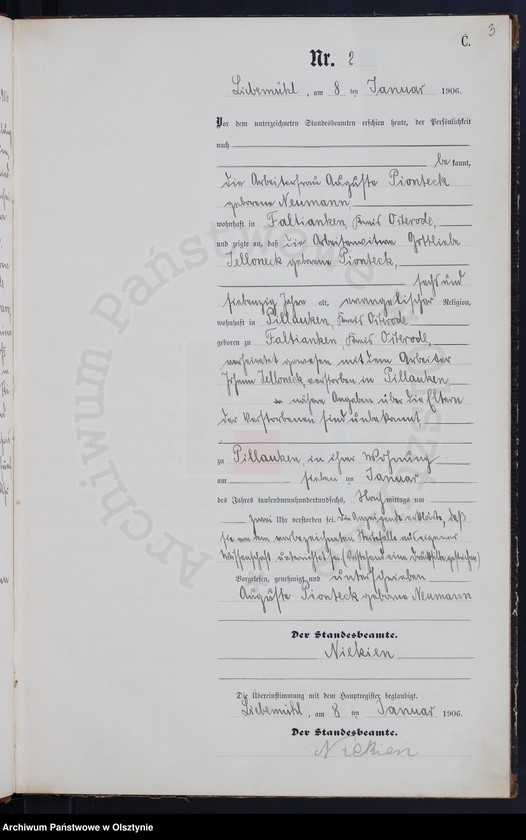 3
C.
Nr. 2
Liebemühl, am 8 ten Januar 1906.
Vor dem unterzeichneten Standesbeamten erschien heute, der Persönlichkeit
nach
be kannt,
die Arbeiterfrau Auguste Pionteck
geborene Neumann,
wohnhaft in Faltianken, Kreis Osterode,
und zeigte an, daß die Arbeiterwitwe Gottliebe
Jelloneck geborene Pionteck,
sechs und
siebenzig Jahre alt, evangelischer Religion,
wohnhaft in Pillauken, Kreis Osterode
geboren zu Faltianken, Kreis Osterode,
verheiratet gewesen mit dem Arbeiter
Johann Jelloneck, verstorben in Pillauken
nähere Angaben über die Eltern
der Verstorbenen sind unbekannt
zu Pillauken, in ihrer Wohnung
am sieben ten Januar
des Jahres tausendneunhundertundsechs, Nach mittags um
zwei Uhr verstorben sei. Die Anzeigende erklärte, daß
sie von dem vorbezeichneten Sterbefalle aus eigener
Wissenschaft unterrichtet sei (Vorstehend eine Druckzeile gestrichen)
Vorgelesen, genehmigt und unterschrieben
Auguste Pionteck geborne Neumann
Der Standesbeamte.
Niekien
Die Übereinstimmung mit dem Hauptregister beglaubigt.
Liebemühl, am 8 ten Januar 1906.
Der Standesbeamte.
Niekien
Archiwum Państwowe w Olsztynie
Archiwum Państwowe w Olsztynie